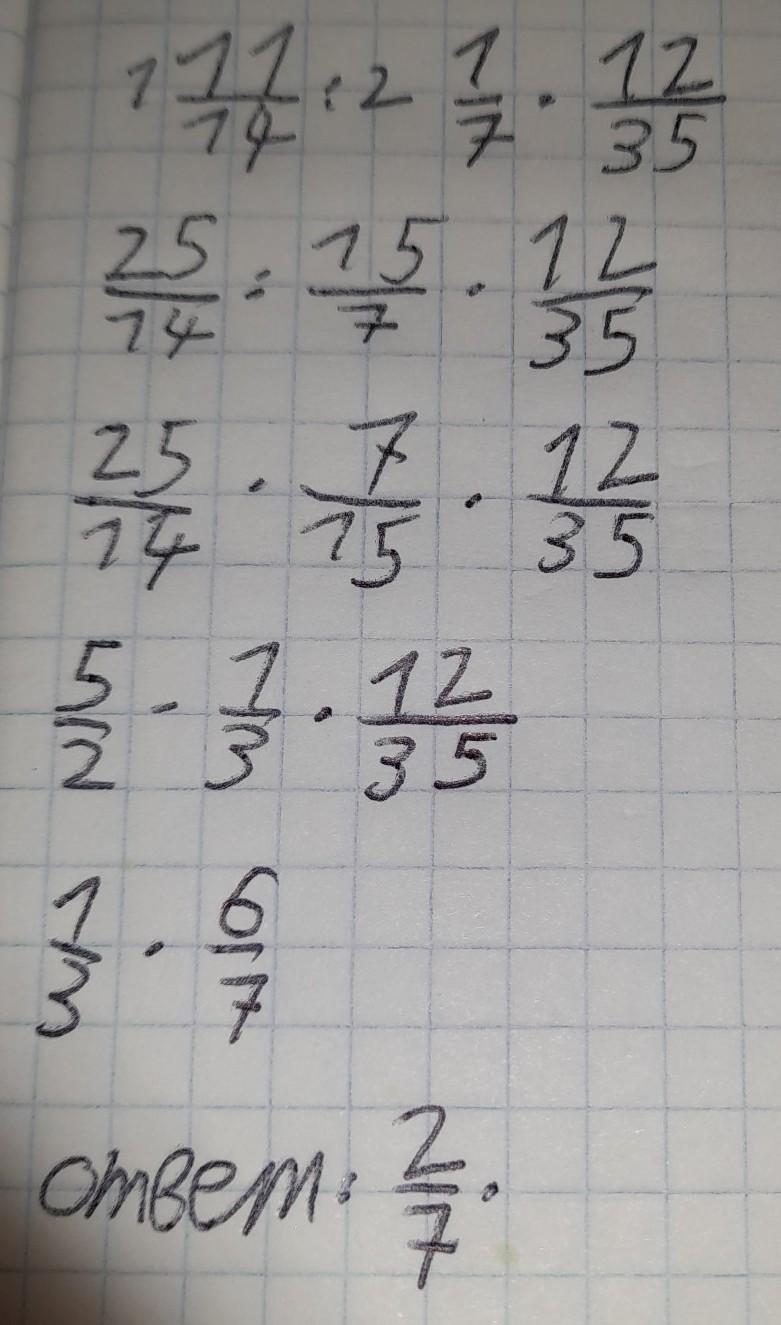 1 11/14 : 2 1/7 · 12/35
25/14 : 15/7 · 12/35
25/14 · 7/15 · 12/35
5/2 · 1/3 · 12/35
1/3 · 6/7
ответ: 2/7.